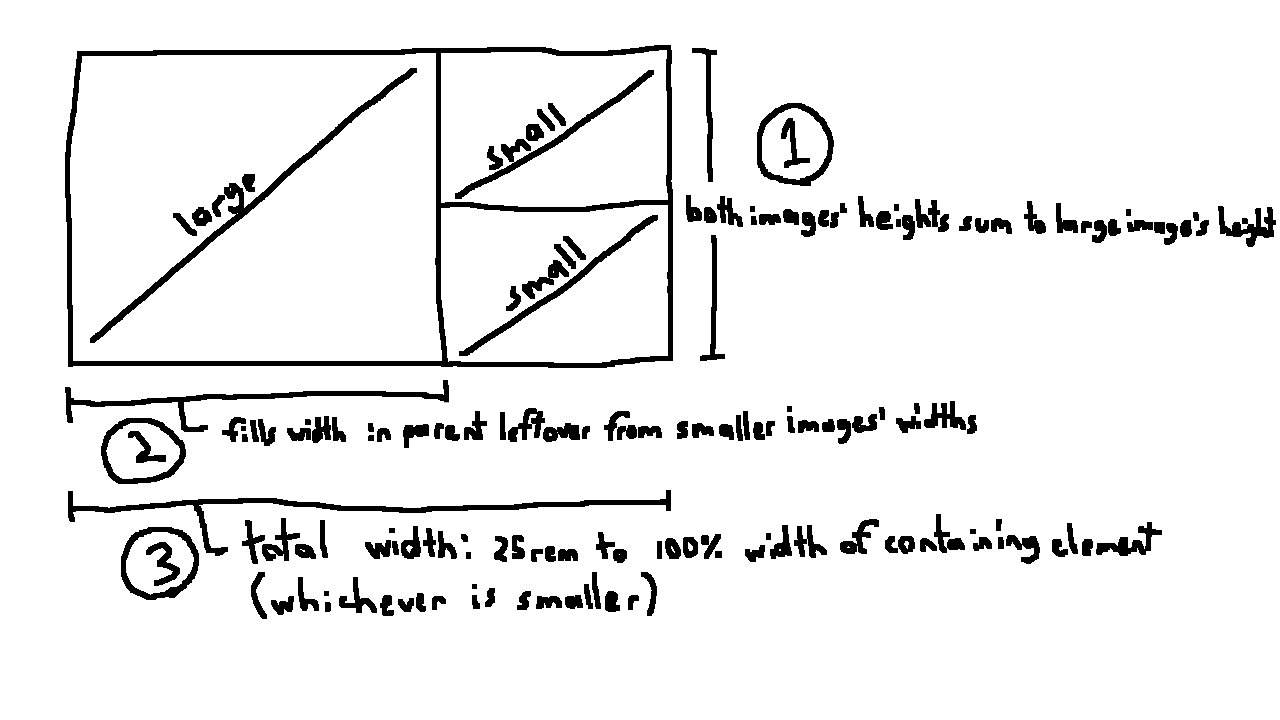 large
small
small
1
both images' heights sum to large image's height
2
fills width in parent leftover from smaller images' widths
3
total width: 25rem to 100% width of containing element
(whichever is smaller)